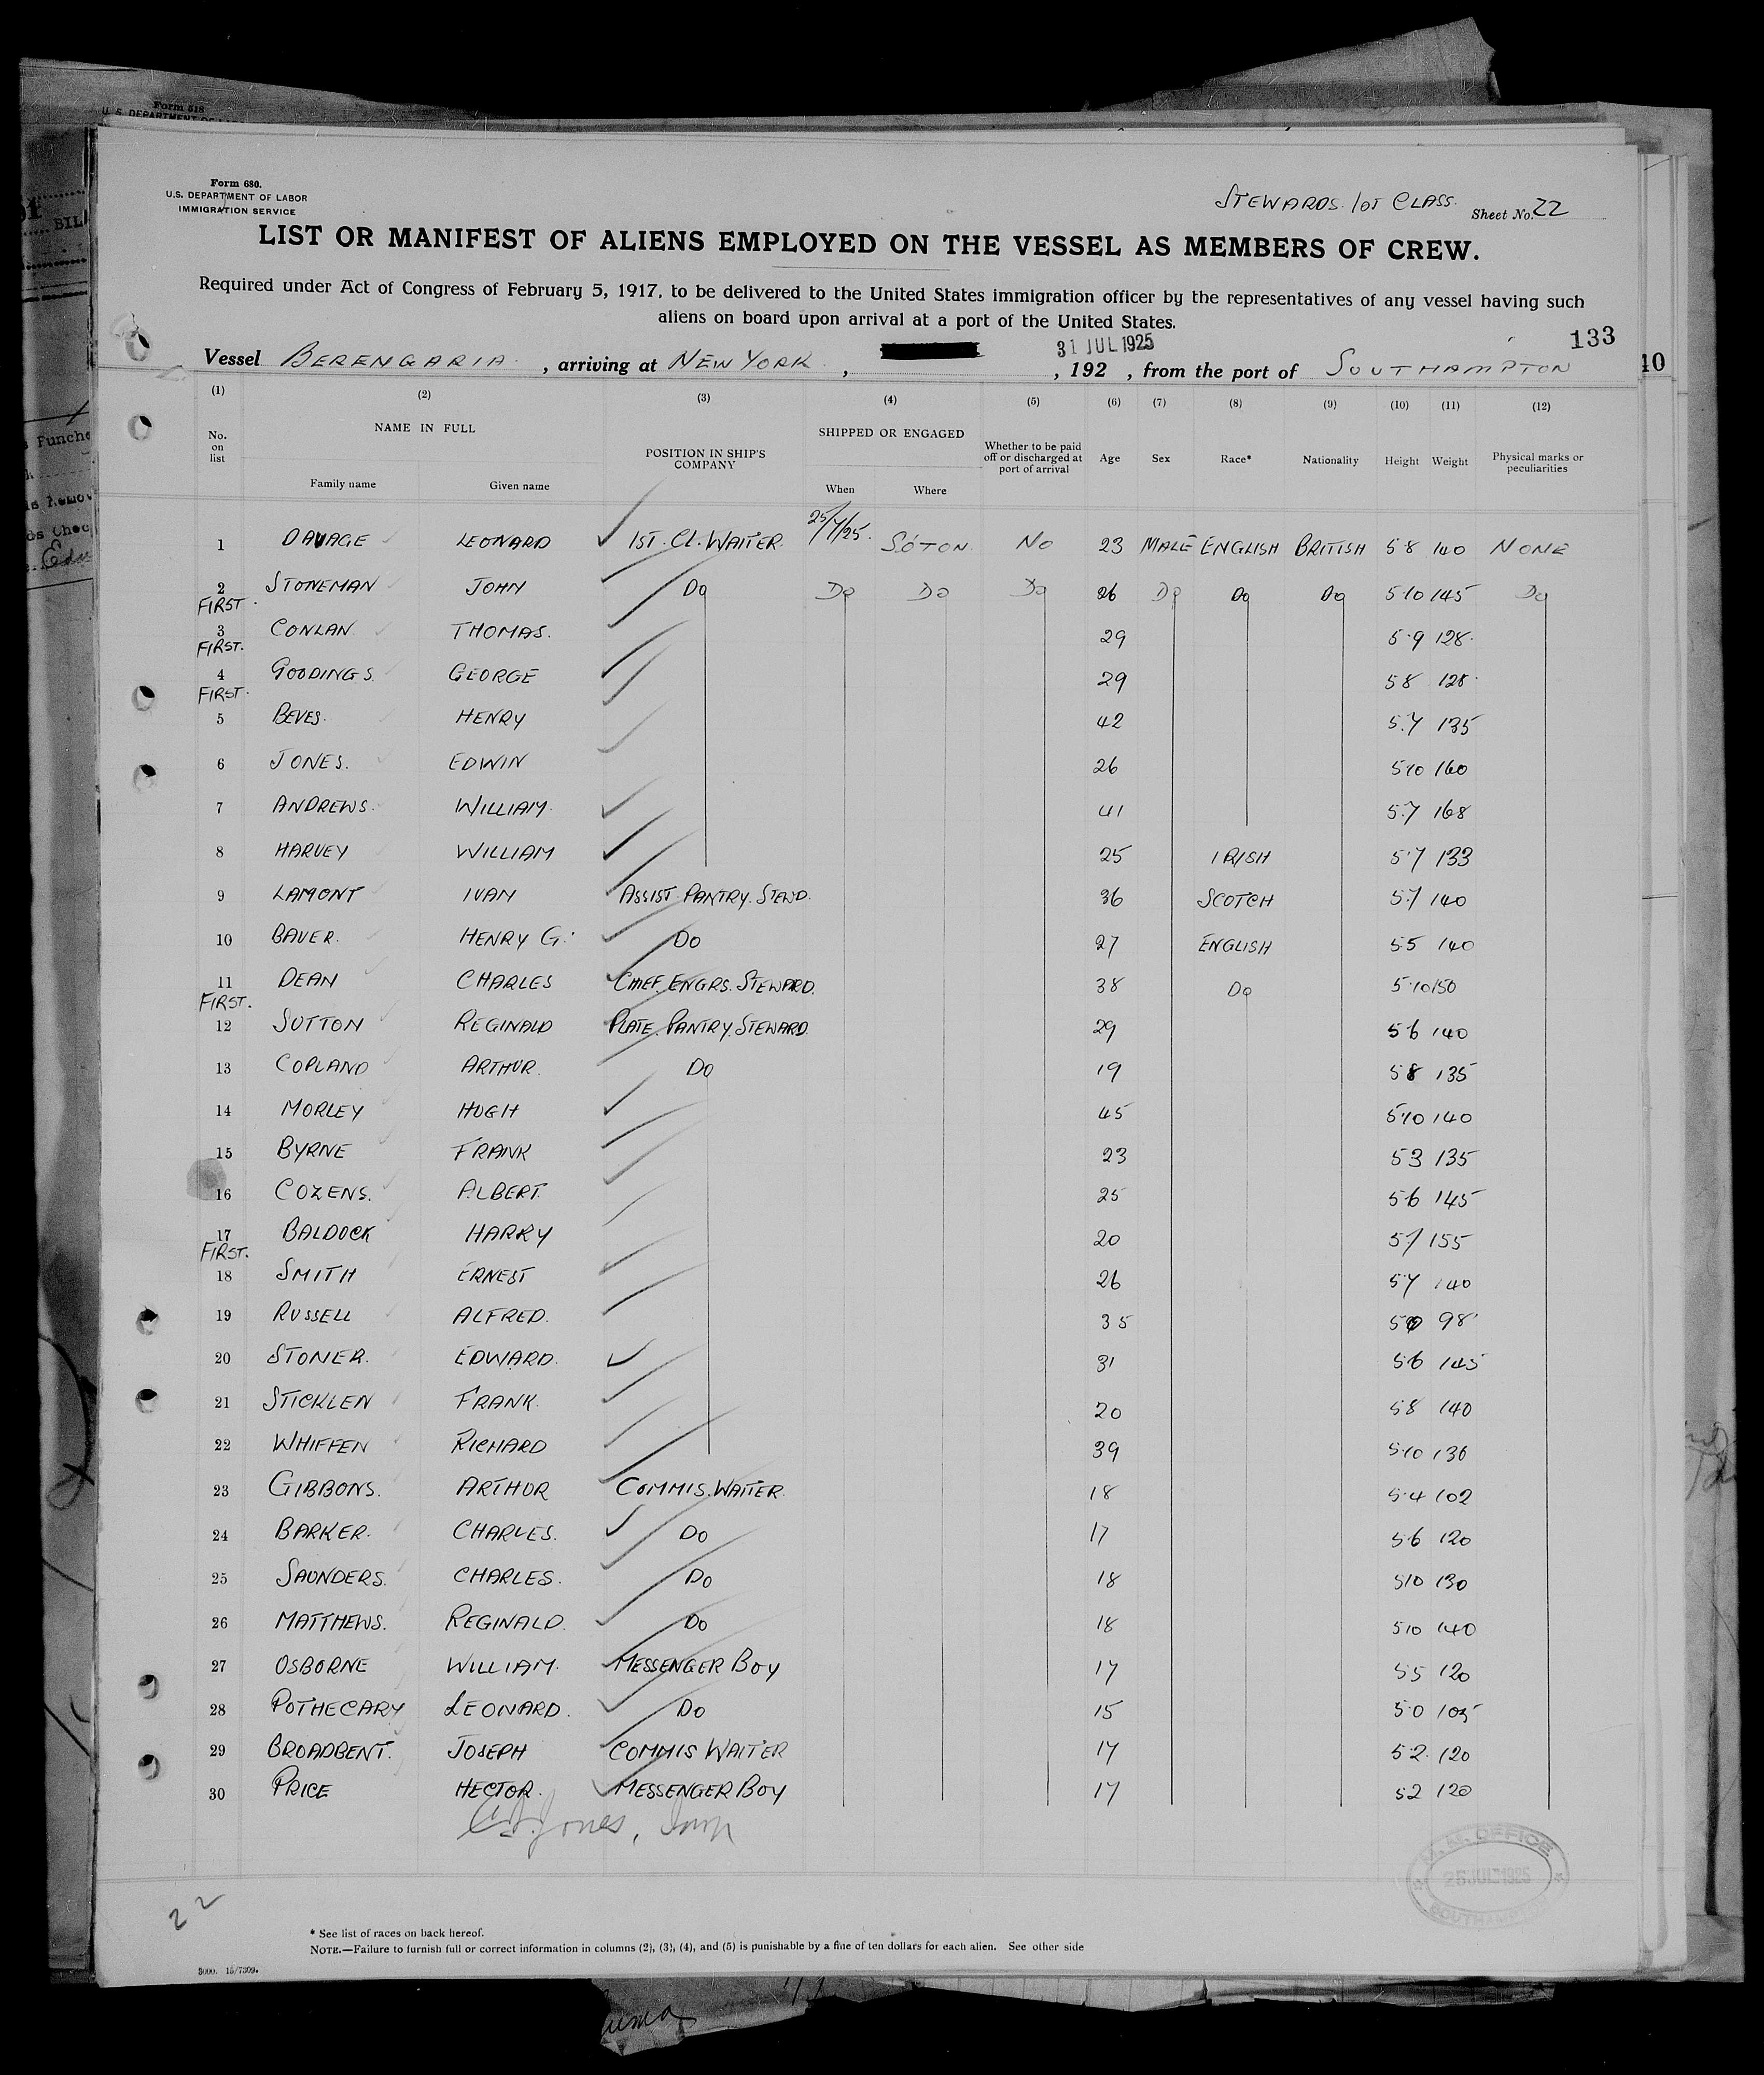 Form 518
U. S. DEPARTMENT OF LABOR
Form 680.
U.S. DEPARTMENT OF LABOR
IMMIGRATION SERVICE
STEWARDS. 1ST CLASS. Sheet No. 22
LIST OR MANIFEST OF ALIENS EMPLOYED ON THE VESSEL AS MEMBERS OF CREW.
Required under Act of Congress of February 5, 1917, to be delivered to the United States immigration officer by the representatives of any vessel having such
aliens on board upon arrival at a port of the United States.
133
31 JUL 1925
Vessel BERENGARIA , arriving at NEW YORK , , 192 , from the port of SOUTHAMPTON
40
(1) (2) (3) (4) (5) (6) (7) (8) (9) (10) (11) (12)
No. on list NAME IN FULL Family name Given name POSITION IN SHIP'S COMPANY SHIPPED OR ENGAGED When Where Whether to be paid off or discharged at port of arrival Age Sex Race* Nationality Height Weight Physical marks or peculiarities
1 DAVAGE LEONARD 1ST. CL. WAITER. 25/7/25. S'OTON. NO 23 MALE ENGLISH BRITISH 5 8 140 NONE
2 STONEMAN JOHN DO DO DO DO 26 DO DO DO 5 10 145 DO
FIRST.
3 CONLAN THOMAS. 29 5.9 128.
FIRST.
4 GOODINGS. GEORGE 29 5 8 128.
FIRST.
5 BEVES. HENRY 42 5.7 135
6 JONES. EDWIN 26 5 10 160
7 ANDREWS. WILLIAM. 41 5.7 168
8 HARVEY WILLIAM 25 IRISH 5.7 133
9 LAMONT IVAN ASSIST. PANTRY. STEWD. 36 SCOTCH 5.7 140
10 BAUER. HENRY G. DO 27 ENGLISH 5 5 140
11 DEAN CHARLES CHIEF. ENGRS. STEWARD. 38 DO 5.10 150
FIRST.
12 SUTTON REGINALD PLATE. PANTRY. STEWARD. 29 5 6 140
13 COPLAND ARTHUR. DO 19 5 8 135
14 MORLEY HUGH 45 5 10 140
15 BYRNE FRANK 23 5 3 135
16 COZENS. ALBERT. 25 5 6 145
17 BALDOCK HARRY 20 5.7 155
FIRST.
18 SMITH ERNEST 26 5 7 140
19 RUSSELL ALFRED. 35 5 0 98
20 STONER. EDWARD. 31 5 6 145
21 STICKLEN FRANK. 20 5 8 140
22 WHIFFEN RICHARD 39 5.10 136
23 GIBBONS. ARTHUR COMMIS. WAITER. 18 5.4 102
24 BARKER. CHARLES. DO 17 5.6 120
25 SAUNDERS. CHARLES. DO 18 5 10 130
26 MATTHEWS. REGINALD. DO 18 5 10 140
27 OSBORNE WILLIAM. MESSENGER BOY 17 5 5 120
28 POTHECARY LEONARD. DO 15 5.0 105
29 BROADBENT. JOSEPH COMMIS WAITER 17 5 2. 120
30 PRICE HECTOR. MESSENGER BOY 17 5 2 120
Jones,
M. OFFICE
25 JUL 1925
SOUTHAMPTON
22
* See list of races on back hereof.
NOTE.—Failure to furnish full or correct information in columns (2), (3), (4), and (5) is punishable by a fine of ten dollars for each alien. See other side
5000. 15/7309.